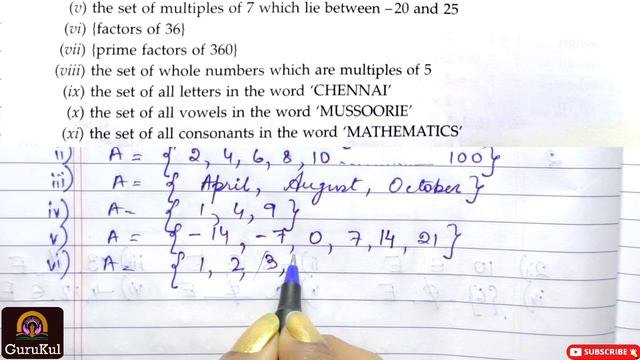 (v) the set of multiples of 7 which lie between –20 and 25
(vi) {factors of 36}
(vii) {prime factors of 360}
(viii) the set of whole numbers which are multiples of 5
(ix) the set of all letters in the word 'CHENNAI'
(x) the set of all vowels in the word 'MUSSOORIE'
(xi) the set of all consonants in the word 'MATHEMATICS'
ii) A = { 2, 4, 6, 8, 10 ............ 100}
iii) A = { April, August, October}
iv) A = { 1, 4, 9}
v) A = { -14, -7, 0, 7, 14, 21 }
vi) A = { 1, 2, 3,
GuruKul
SUBSCRIBE